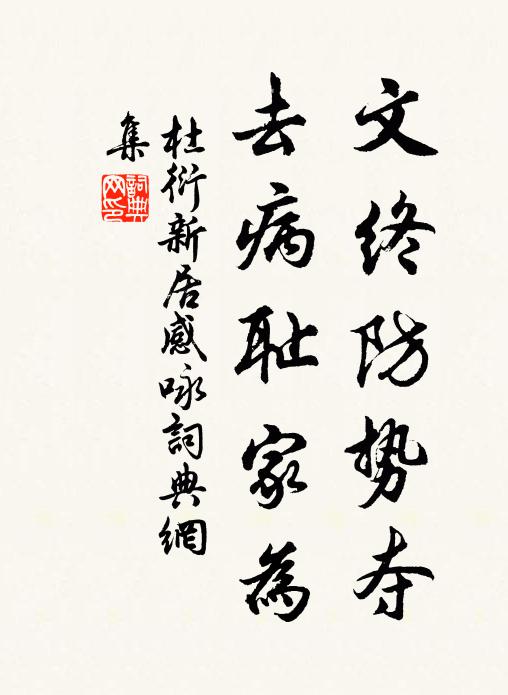 文终防势夺
去病耻家為
杜衍新居感咏詞典網
集
詞典
网印